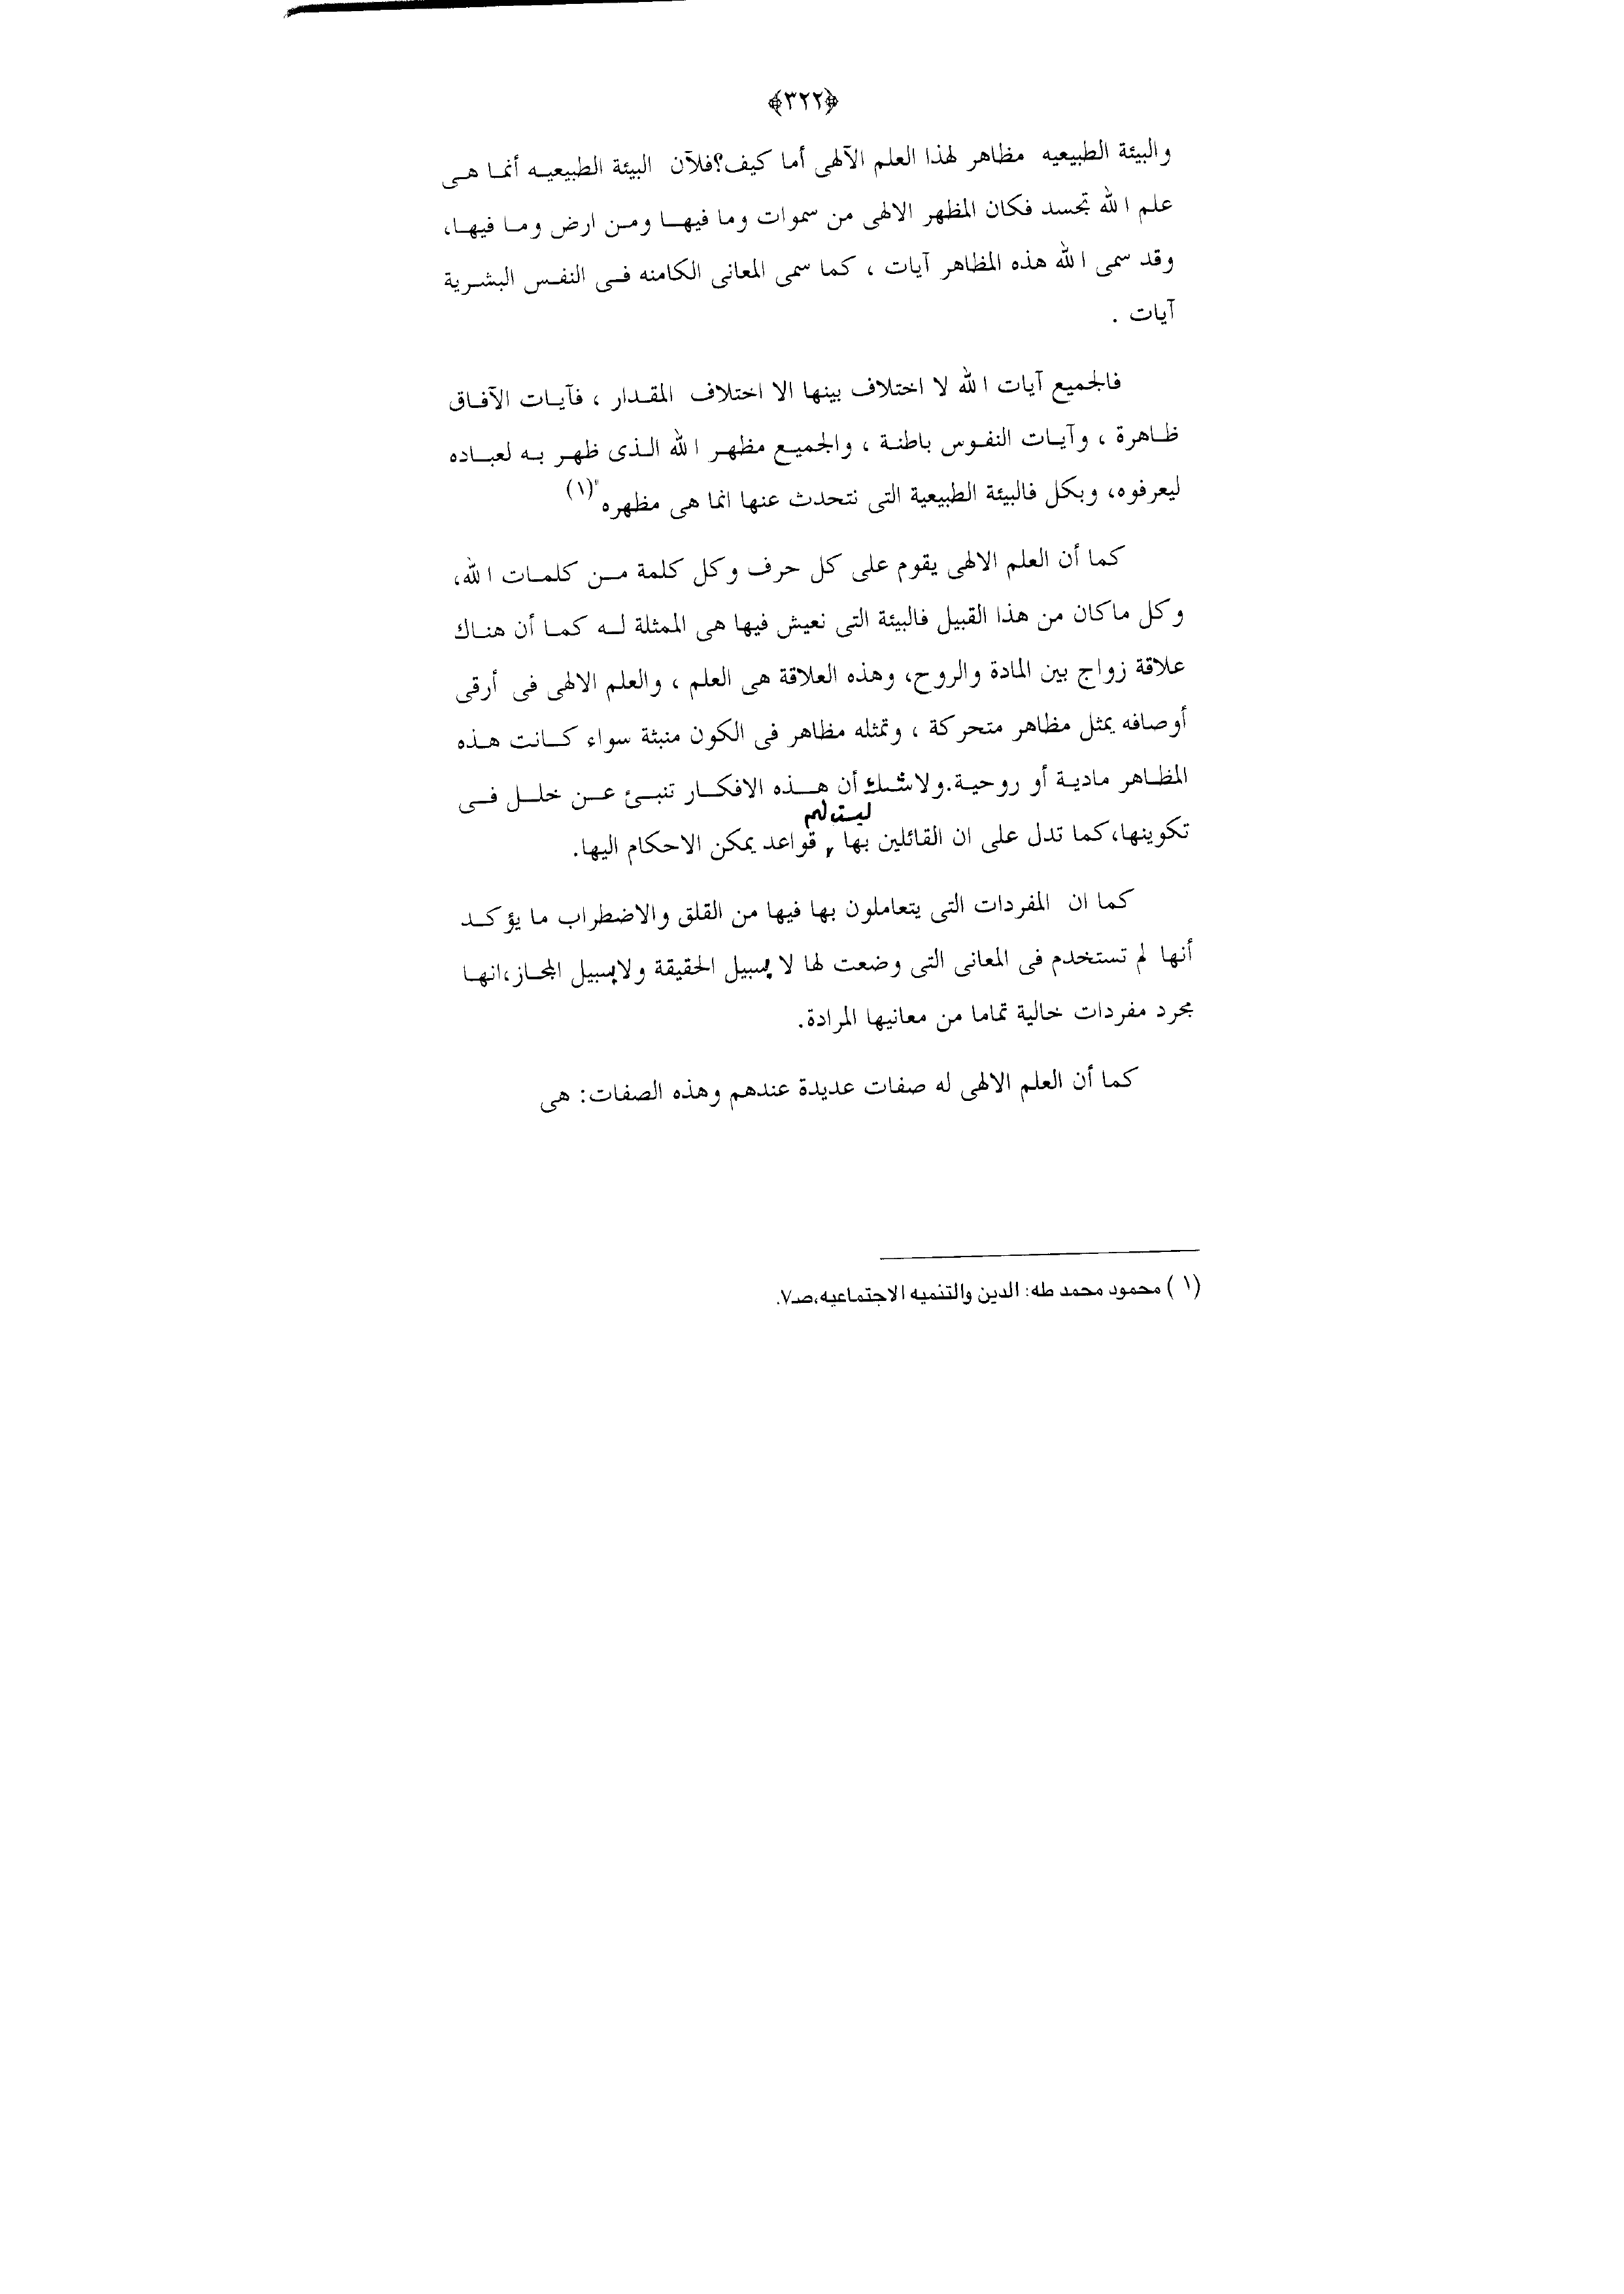 ﴿٣٢٢﴾
والبيئة الطبيعيه مظاهر لهذا العلم الآلهى أما كيف؟فلآن البيئة الطبيعيه أنما هى
علم الله تجسد فكان المظهر الالهى من سموات وما فيها ومن ارض وما فيها،
وقد سمى الله هذه المظاهر آيات ، كما سمى المعانى الكامنه فى النفس البشرية
آيات .
فالجميع آيات الله لا اختلاف بينها الا اختلاف المقدار ، فآيات الآفاق
ظاهرة ، وآيات النفوس باطنة ، والجميع مظهر الله الذى ظهر به لعباده
ليعرفوه، وبكل فالبيئة الطبيعية التى نتحدث عنها انما هى مظهره"(١)
كما أن العلم الالهى يقوم على كل حرف وكل كلمة من كلمات الله،
وكل ماكان من هذا القبيل فالبيئة التى نعيش فيها هى الممثلة له كما أن هناك
علاقة زواج بين المادة والروح، وهذه العلاقة هى العلم ، والعلم الالهى فى أرقى
أوصافه يمثل مظاهر متحركة ، وتمثله مظاهر فى الكون منبثة سواء كانت هذه
المظاهر مادية أو روحية.ولاشك أن هذه الافكار تنبئ عن خلل فى
تكوينها،كما تدل على ان القائلين بها ليست لهم قواعد يمكن الاحكام اليها.
كما ان المفردات التى يتعاملون بها فيها من القلق والاضطراب ما يؤكد
أنها لم تستخدم فى المعانى التى وضعت لها لا بسبيل الحقيقة ولابسبيل المجاز،انها
مجرد مفردات خالية تماما من معانيها المرادة.
كما أن العلم الالهى له صفات عديدة عندهم وهذه الصفات: هى
(١) محمود محمد طه: الدين والتنميه الاجتماعيه،صـ٧.